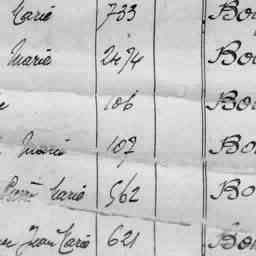 Marie 733 Bo
Marie 2474 Bo
106 Bo
Marie 107 Bo
Marie 562 Bo
Jean Marie 621 Bo